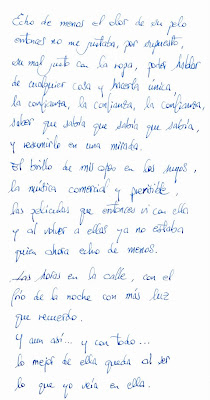 Echo de menos el olor de su pelo
entonces no me gustaba, por supuesto,
su mal gusto con la ropa, poder hablar
de cualquier cosa y hacerla única,
la confianza, la confianza, la confianza,
saber que sabía que sabía que sabía,
y resumirlo en una mirada.
El brillo de mis ojos en los suyos,
la música comercial y prescindible,
las películas que entonces vi con ella
y al volver a ellas ya no estaba
quien ahora echo de menos.
Las horas en la calle, con el
frío de la noche con más luz
que recuerdo.
Y aun así... y con todo...
lo mejor de ella queda al ser
lo que yo veía en ella.